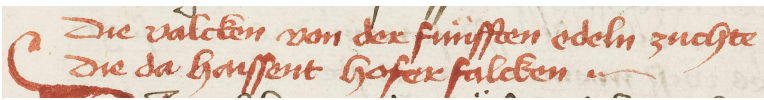 Die valcken von der fünfften edeln zuchte
die da haissent hofer falcken